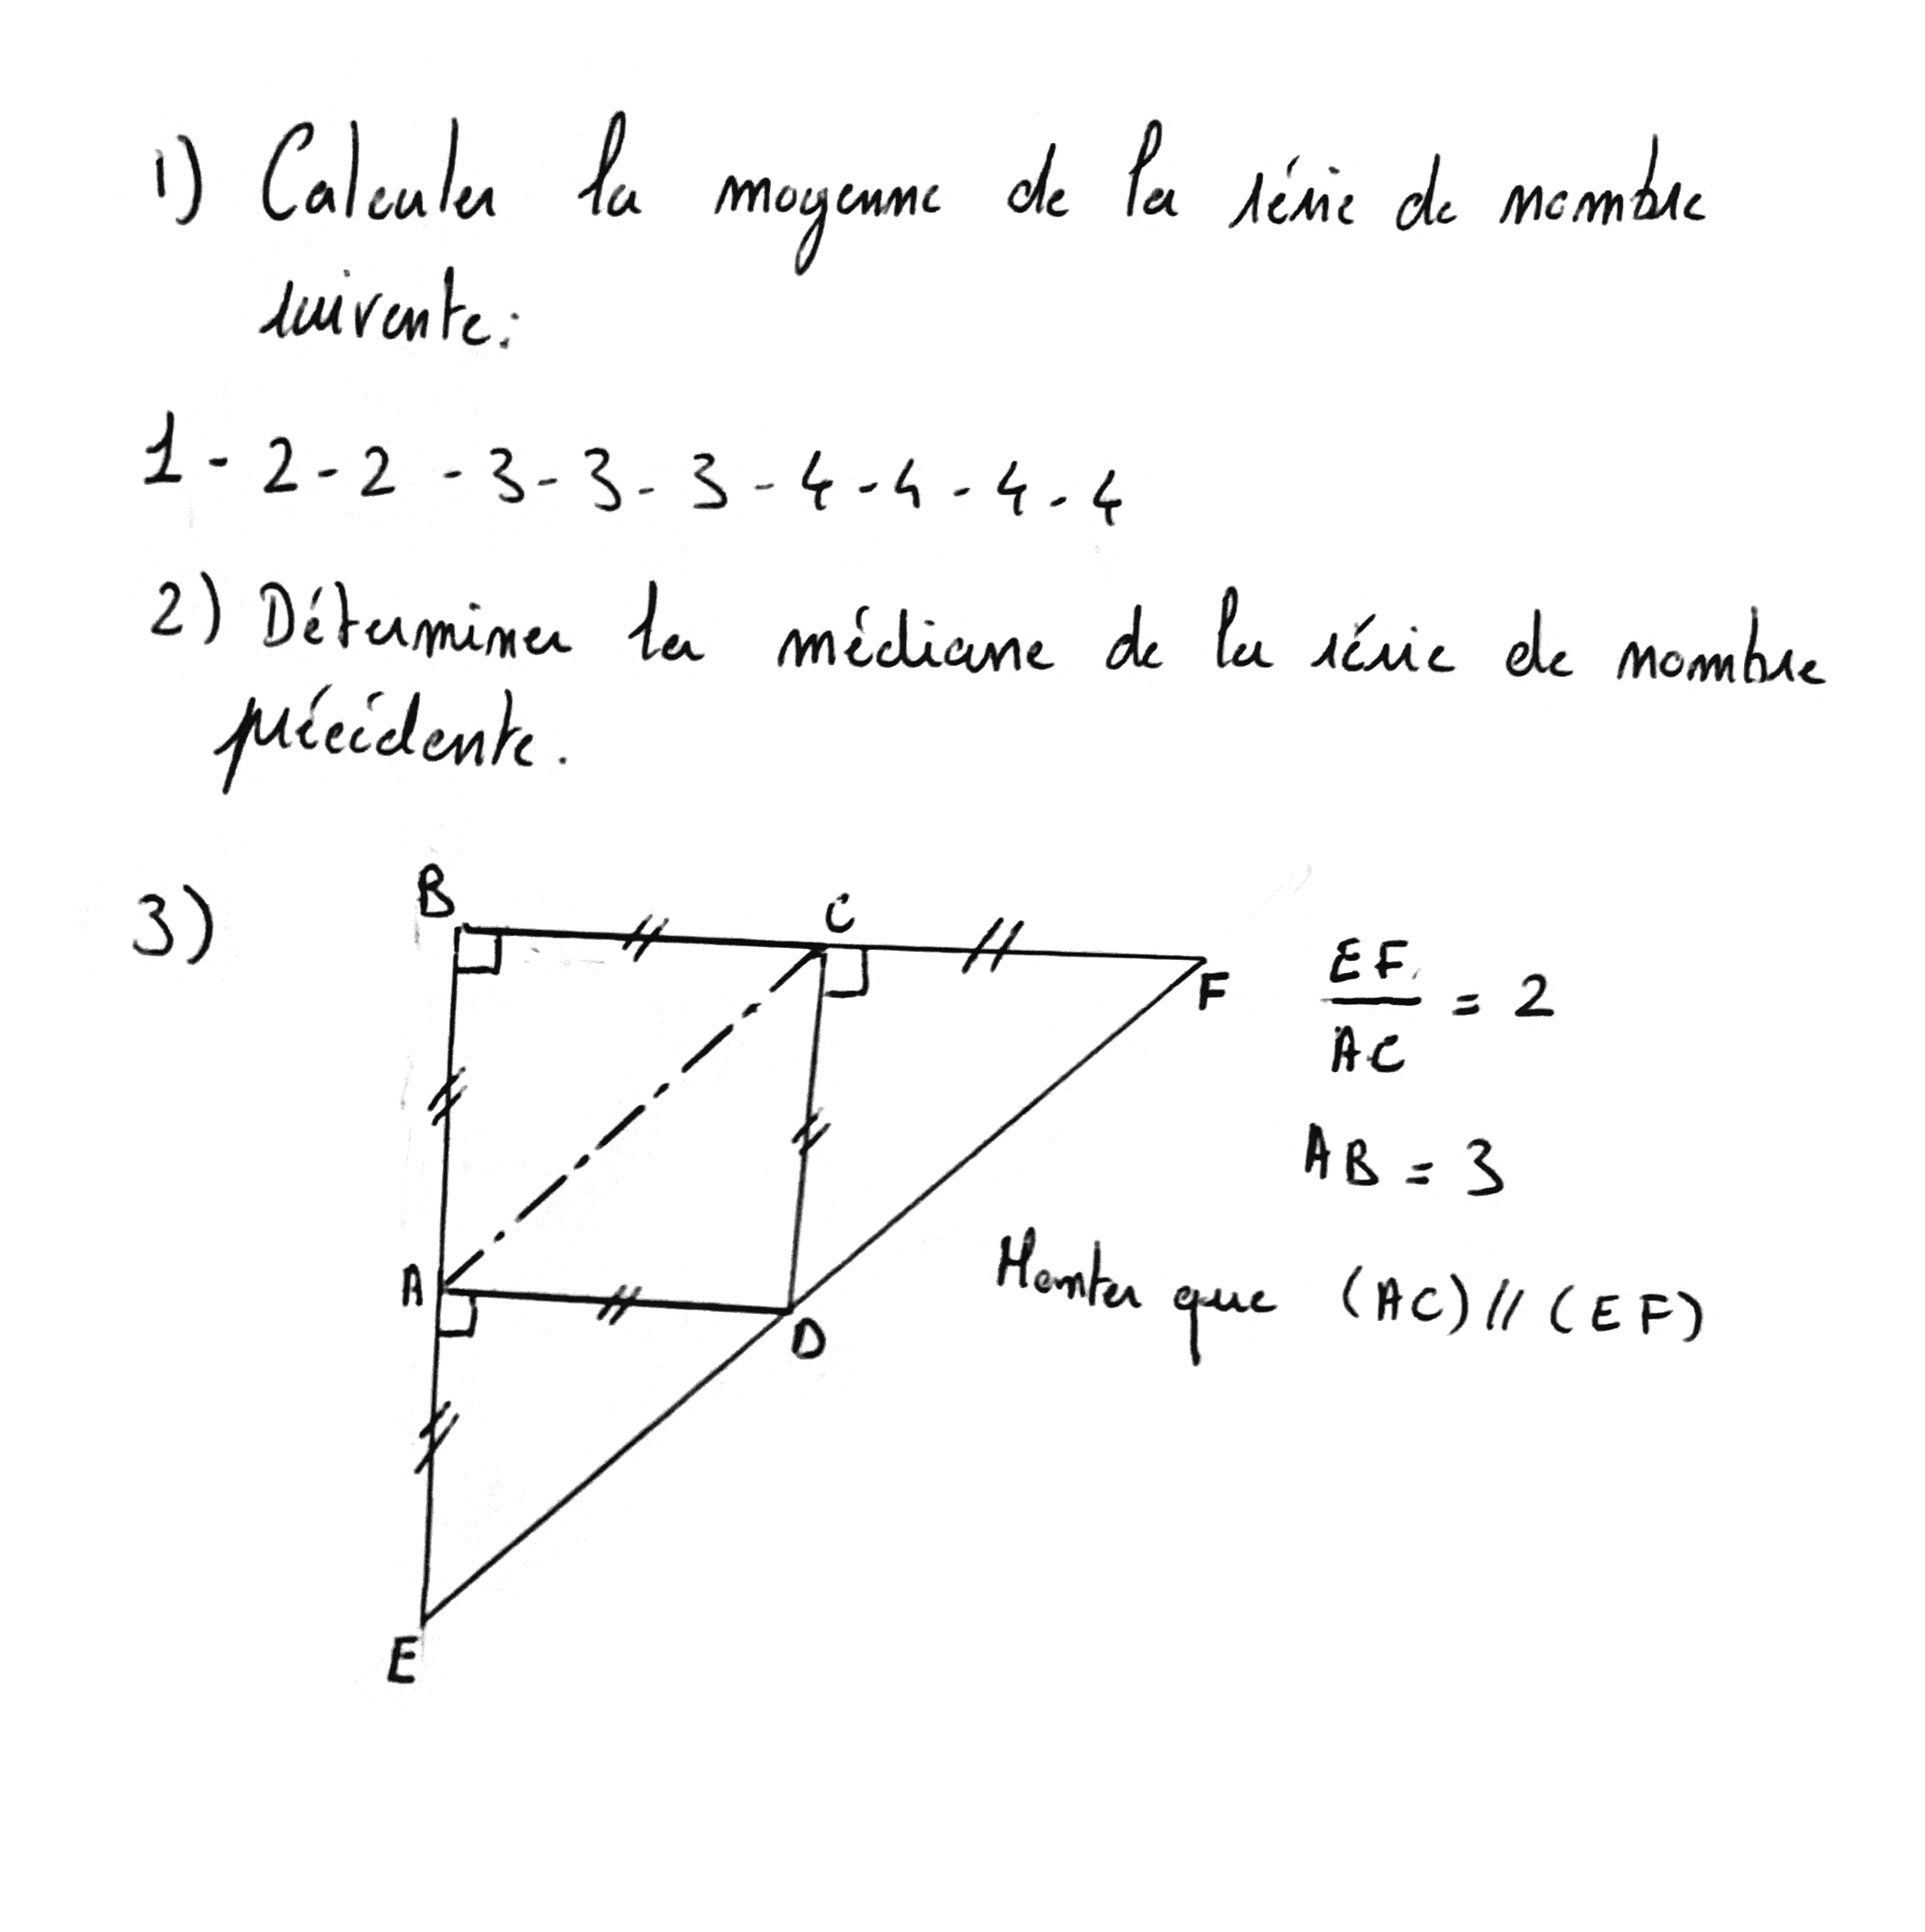 1) Calculer la moyenne de la série de nombre
suivante:
1 - 2 - 2 - 3 - 3 - 3 - 4 - 4 - 4 - 4
2) Déterminer la médiane de la série de nombre
précédente.
3)
B
C
F
A
D
E
EF
AC
= 2
AB = 3
Monter que (AC) // (EF)